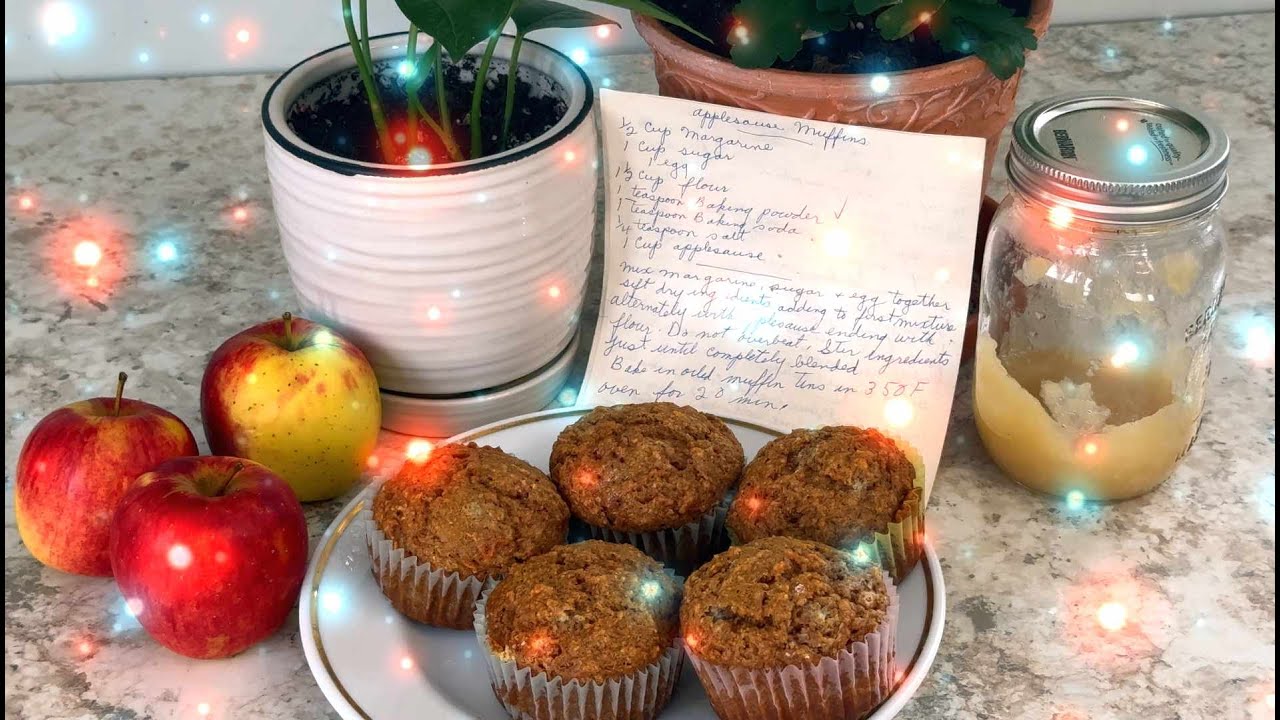 applesause Muffins
1/2 Cup Margarine
1 Cup sugar
1 egg
1 1/2 Cup flour
1 teaspoon Baking powder ✓
1 teaspoon Baking soda
1/4 teaspoon salt
1 Cup applesause
Mix Margarine, sugar + egg together
sift dry ing idents adding to first mixture
alternately with applesause ending with
flour. Do not overbeat. Stir Ingredients
Just until completely blended
Bake in muffin tins in 350F
oven for 20 min.
BERNARDIN